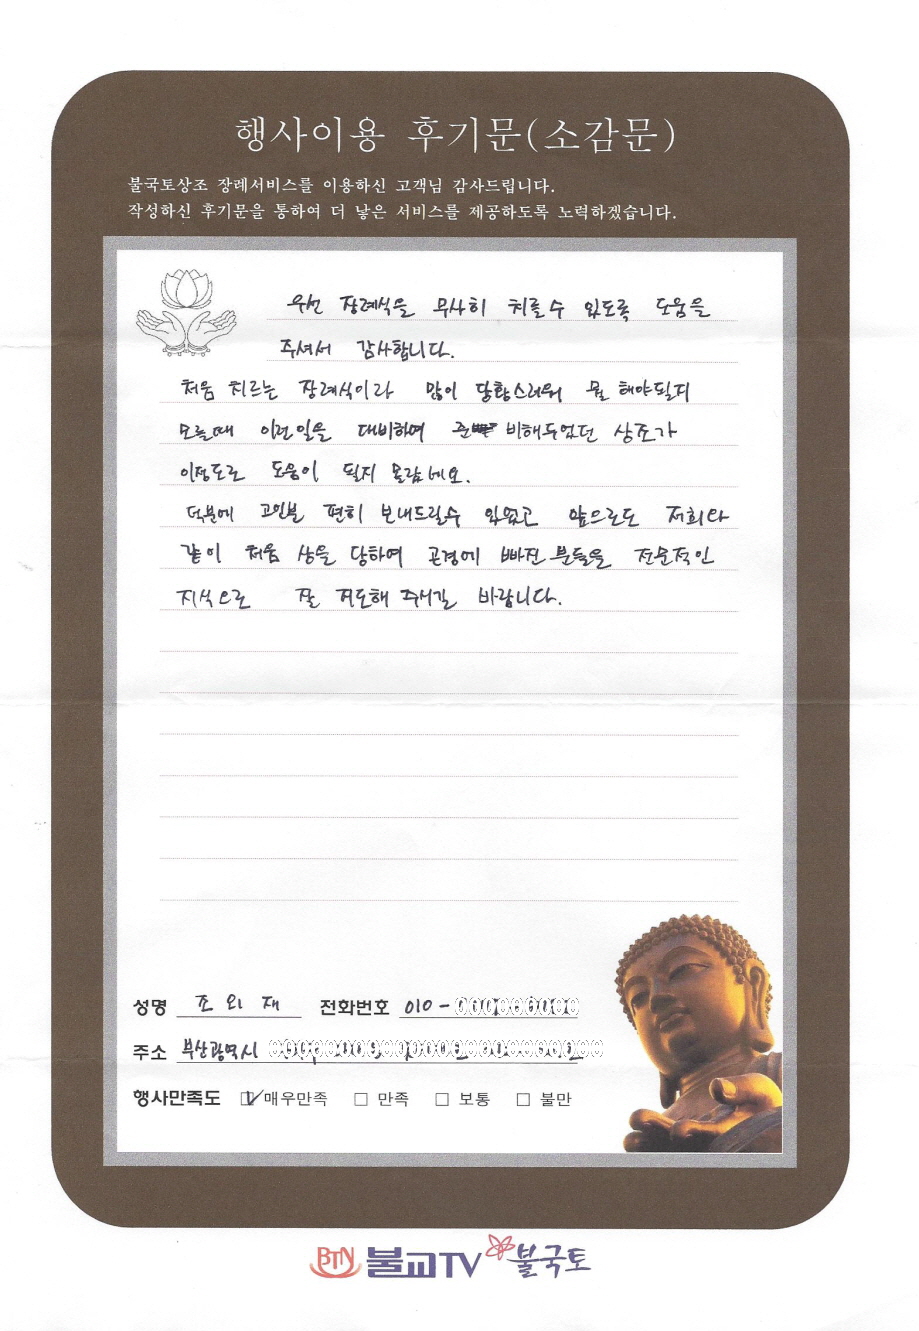 행사이용 후기문(소감문)
불국토상조 장례서비스를 이용하신 고객님 감사드립니다.
작성하신 후기문을 통하여 더 낳은 서비스를 제공하도록 노력하겠습니다.
우선 장례식을 무사히 치를수 있도록 도움을
주셔서 감사합니다.
처음 치르는 장례식이라 많이 당황스러워 뭘 해야될지
모를때 이런일을 대비하여 준비해두었던 상조가
이정도로 도움이 될지 몰랐네요.
덕분에 고인분 편히 보내드릴수 있었고 앞으로도 저희와
같이 처음 상을 당하여 곤경에 빠진 분들을 전문적인
지식으로 잘 지도해 주시길 바랍니다.
성명 조외재 전화번호 010-
주소 부산광역시
행사만족도 ☑매우만족 □ 만족 □ 보통 □ 불만
BTN 불교TV 불국토